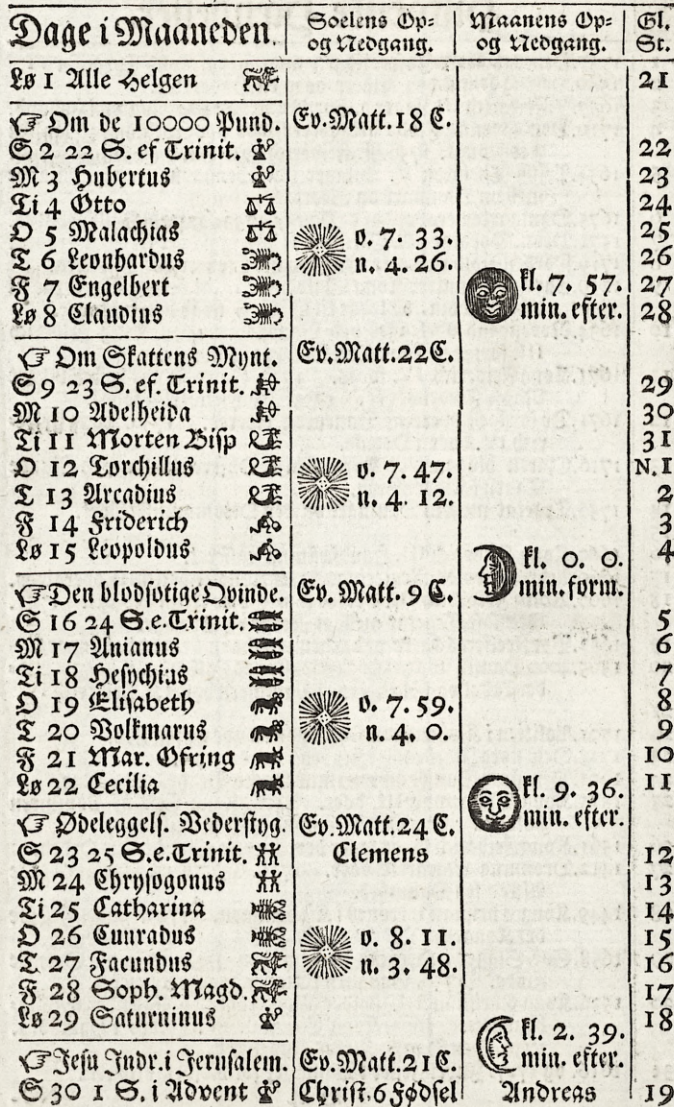 Dage i Maaneden. Soelens Op- og Nedgang. Maanens Op- og Nedgang. Gl. St.
Lø 1 Alle Helgen 21
☞ Om de 10000 Pund. Ev. Matt. 18 C.
S 2 22 S. ef Trinit. 22
M 3 Hubertus 23
Ti 4 Otto 24
O 5 Malachias o. 7. 33. 25
T 6 Leonhardus n. 4. 26. 26
F 7 Engelbert kl. 7. 57. 27
Lø 8 Claudius min. efter. 28
☞ Om Skattens Mynt. Ev. Matt. 22 C.
S 9 23 S. ef. Trinit. 29
M 10 Adelheida 30
Ti 11 Morten Bisp 31
O 12 Torchillus o. 7. 47. N. 1
T 13 Arcadius n. 4. 12. 2
F 14 Friderich 3
Lø 15 Leopoldus kl. 0. 0. 4
☞ Den blodsotige Qvinde. Ev. Matt. 9 C. min. form.
S 16 24 S. e. Trinit. 5
M 17 Anianus 6
Ti 18 Hesychius 7
O 19 Elisabeth o. 7. 59. 8
T 20 Volkmarus n. 4. 0. 9
F 21 Mar. Ofring 10
Lø 22 Cecilia kl. 9. 36. 11
☞ Ødeleggels. Vederstyg. Ev. Matt. 24 C. min. efter.
S 23 25 S. e. Trinit. Clemens 12
M 24 Chrysogonus 13
Ti 25 Catharina 14
O 26 Cunradus o. 8. 11. 15
T 27 Facundus n. 3. 48. 16
F 28 Soph. Magd. 17
Lø 29 Saturninus kl. 2. 39. 18
☞ Jesu Indr. i Jerusalem. Ev. Matt. 21 C. min. efter.
S 30 1 S. i Advent Christ. 6 Fødsel Andreas 19